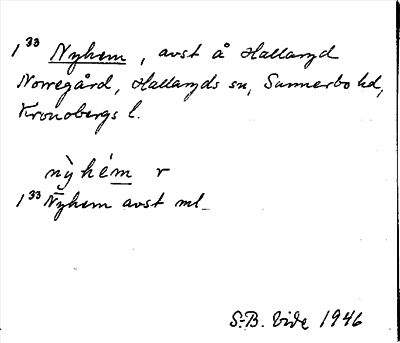 1³³ Nyhem, avst å Hallaryd
Norregård, Hallaryds sn, Sunnerbo hd,
Kronobergs l.
nỳhém r
1³³ Nyhem avst ml_
S.-B. Vide 1946